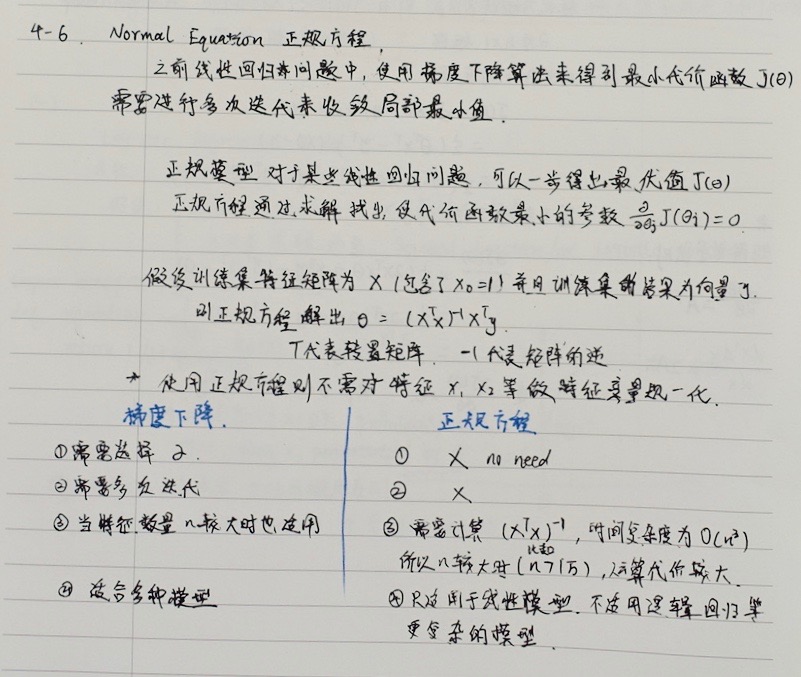 4-6. Normal Equation 正规方程,
之前线性回归问题中,使用梯度下降算法来得到最小代价函数 J(θ)
需要进行多次迭代来收敛局部最小值.
正规模型 对于某些线性回归问题,可以一步得出最优值J(θ)
正规方程通过求解找出使代价函数最小的参数 ∂/∂θj J(θj)=0
假设训练集特征矩阵为 X (包含了 x₀=1) 并且训练集的结果为向量 y.
则正规方程解出 θ = (XᵀX)⁻¹Xᵀy.
T代表转置矩阵. -1代表矩阵的逆
* 使用正规方程则不需对特征 x₁ x₂ 等做特征变量规一化.
梯度下降. 正规方程
①需要选择 α. ① X no need
②需要多次迭代 ② X
③当特征数量 n 较大时也适用 ③ 需要计算 (XᵀX)⁻¹, 时间复杂度为 O(n³)
所以n较大时 (n>1万), 运算代价较大.
④ 适合多种模型 ④ 只适用于线性模型. 不适用逻辑回归等
更复杂的模型.